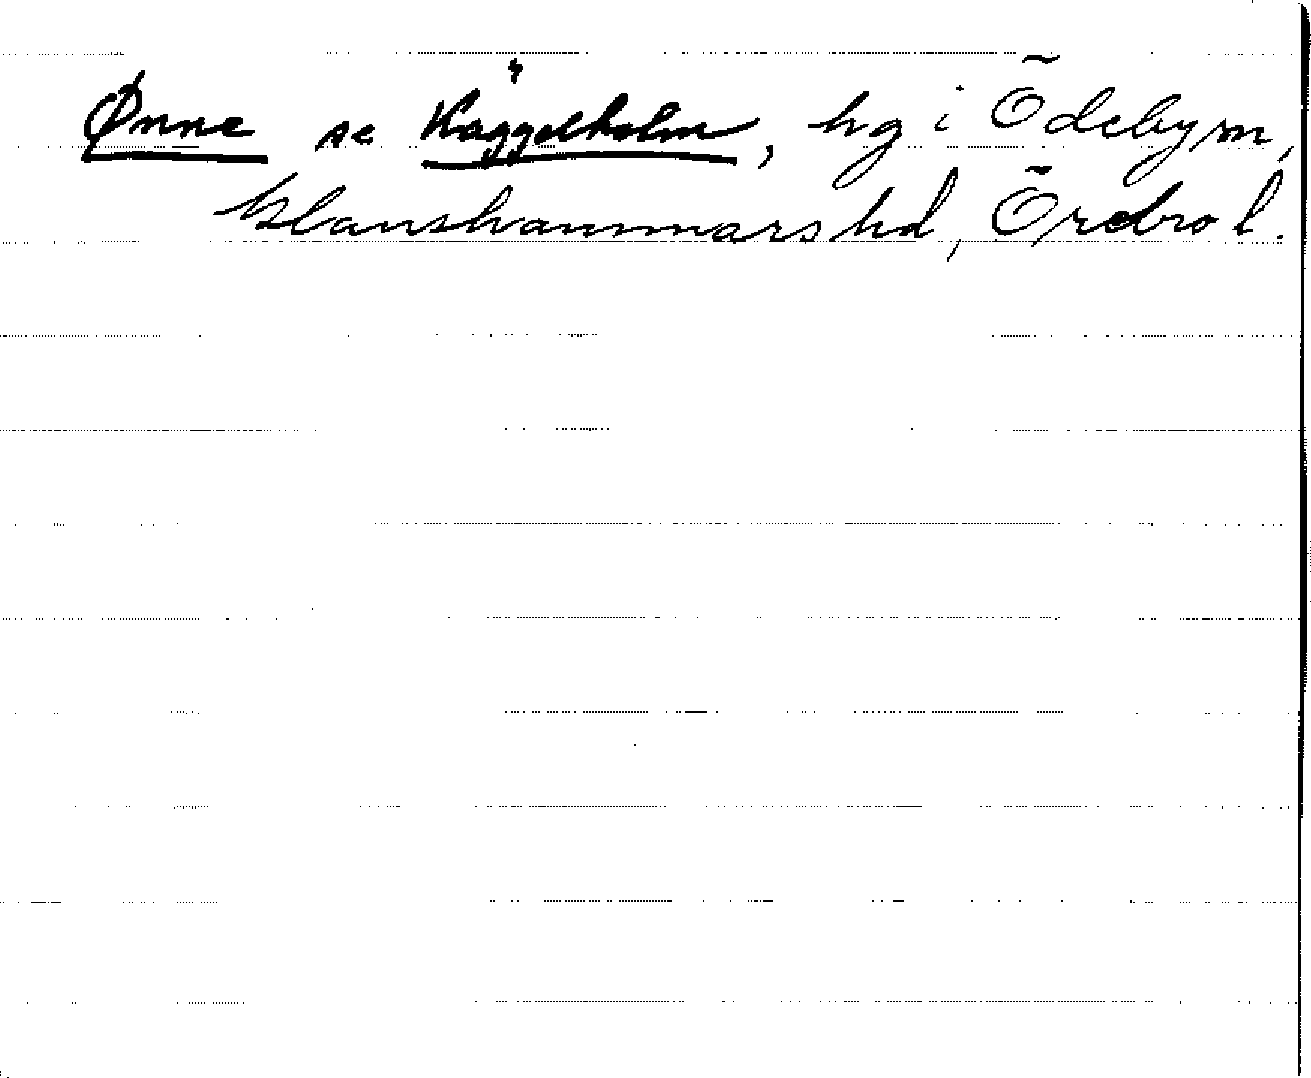 Ønne se Käggelholm, hg i Ödebym,
Glanshammars hd, Örebro l.